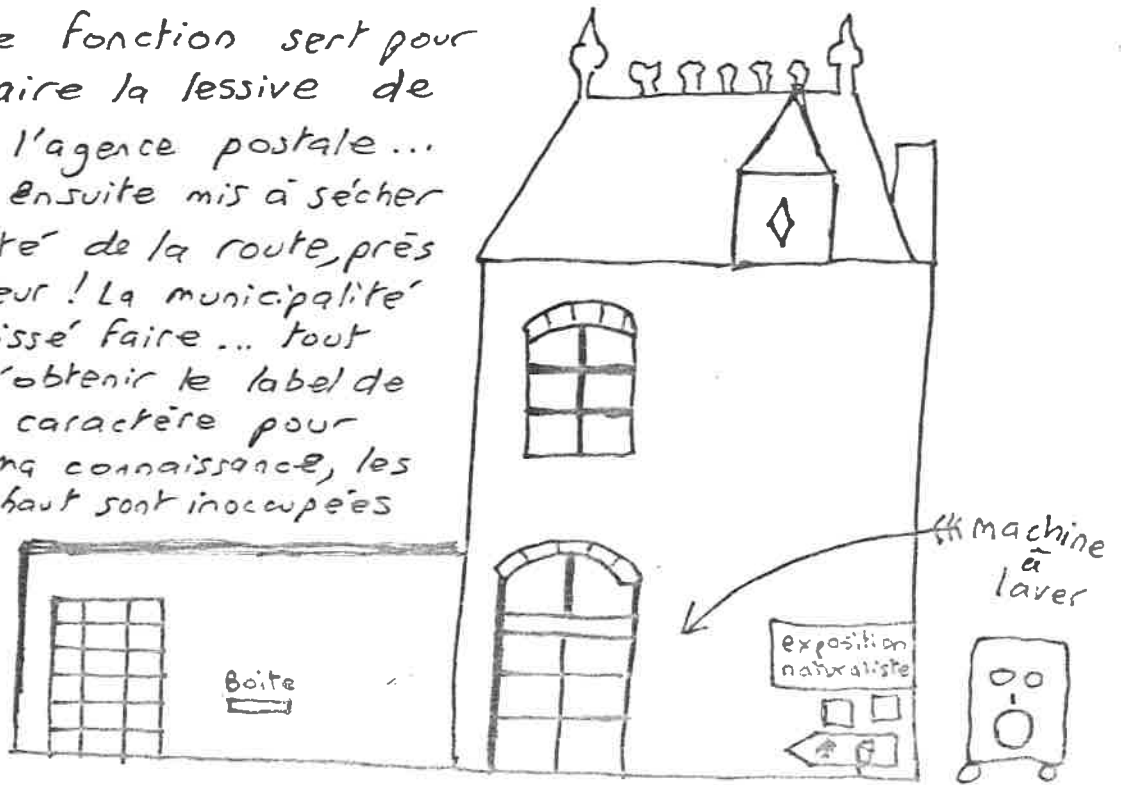 e fonction sert pour
aire la lessive de
l'agence postale...
ensuite mis à sécher
té de la route, près
eur ! La municipalité
issé faire ... tout
'obtenir le label de
caractère pour
ma connaissance, les
haut sont inoccupées
machine
à
laver
exposition
naturaliste
Boite